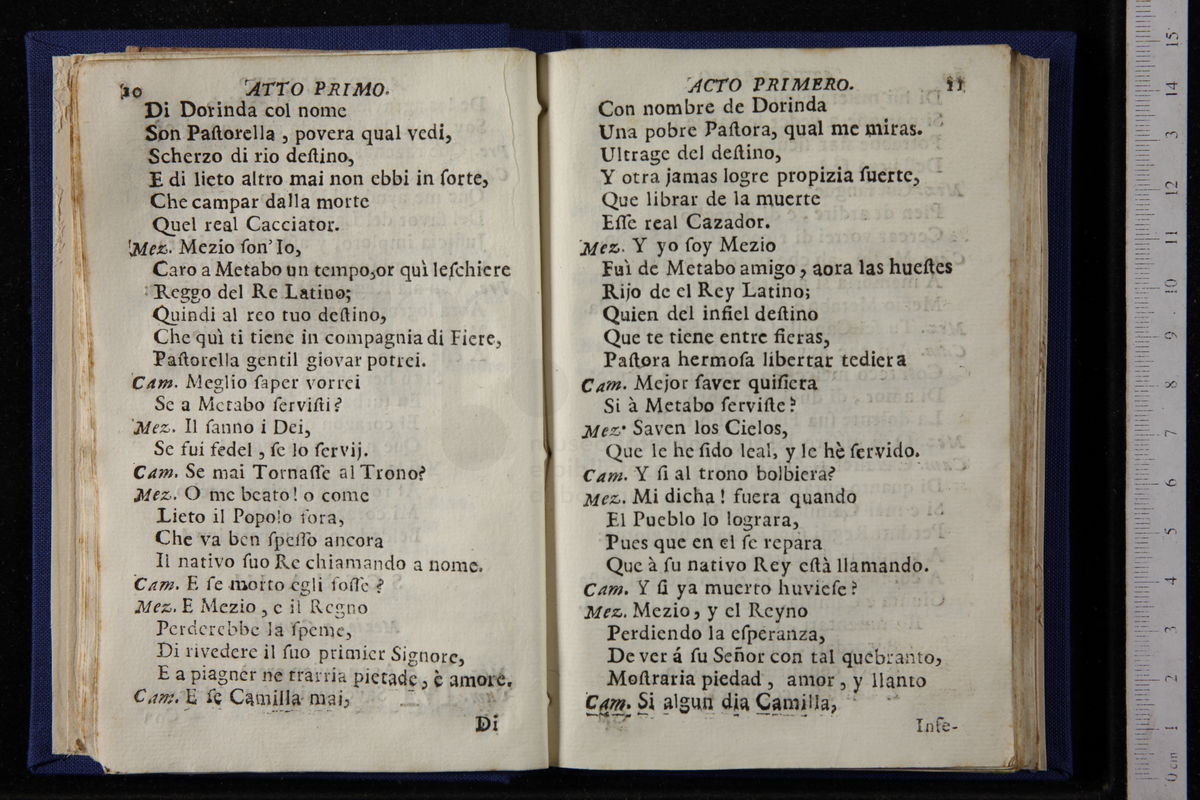 10 ATTO PRIMO.
Di Dorinda col nome
Son Paſtorella , povera qual vedi,
Scherzo di rio deſtino,
E di lieto altro mai non ebbi in ſorte,
Che campar dalla morte
Quel real Cacciator.
Mez. Mezio ſon' Io,
Caro a Metabo un tempo,or quì leſchiere
Reggo del Re Latino;
Quindi al reo tuo deſtino,
Che quì ti tiene in compagnia di Fiere,
Paſtorella gentil giovar potrei.
Cam. Meglio ſaper vorrei
Se a Metabo ſerviſti?
Mez. Il ſanno i Dei,
Se fui fedel , ſe lo ſervij.
Cam. Se mai Tornaſſe al Trono?
Mez. O me beato! o come
Lieto il Popolo fora,
Che va ben ſpeſſo ancora
Il nativo ſuo Re chiamando a nome.
Cam. E ſe morto egli foſſe ?
Mez. E Mezio , e il Regno
Perderebbe la ſpeme,
Di rivedere il ſuo primier Signore,
E a piagner ne trarria pietade, è amore.
Cam. E ſe Camilla mai,
Di
ACTO PRIMERO. 11
Con nombre de Dorinda
Una pobre Paſtora, qual me miras.
Ultrage del deſtino,
Y otra jamas logre propizia ſuerte,
Que librar de la muerte
Eſſe real Cazador.
Mez. Y yo ſoy Mezio
Fuì de Metabo amigo , aora las hueſtes
Rijo de el Rey Latino;
Quien del infiel deſtino
Que te tiene entre fieras,
Paſtora hermoſa libertar tediera
Cam. Mejor ſaver quiſiera
Si à Metabo ſerviſte?
Mez· Saven los Cielos,
Que le he ſido leal, y le hè ſervido.
Cam. Y ſi al trono bolbiera?
Mez. Mi dicha ! fuera quando
El Pueblo lo lograra,
Pues que en el ſe repara
Que à ſu nativo Rey eſtà llamando.
Cam. Y ſi ya muerto huvieſe?
Mez. Mezio, y el Reyno
Perdiendo la eſperanza,
De ver á ſu Señor con tal quebranto,
Moſtraria piedad , amor , y llanto
Cam. Si algun dia Camilla,
Inſe-
0 cm 1 2 3 4 5 6 7 8 9 10 11 12 13 14 15